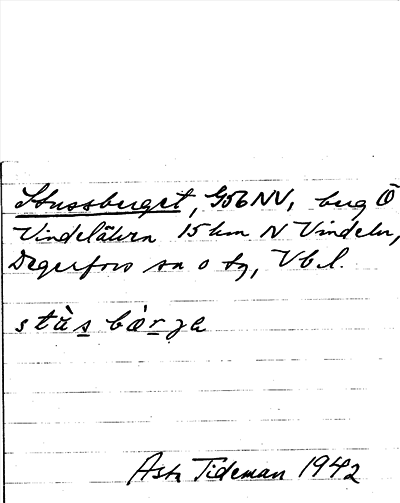 Stussberget, G56NV, berg Ö
Vindelälven 15 km N Vindeln,
Degerfors sn o tg, Vb l.
stàs bàrja
Astr Tideman 1942